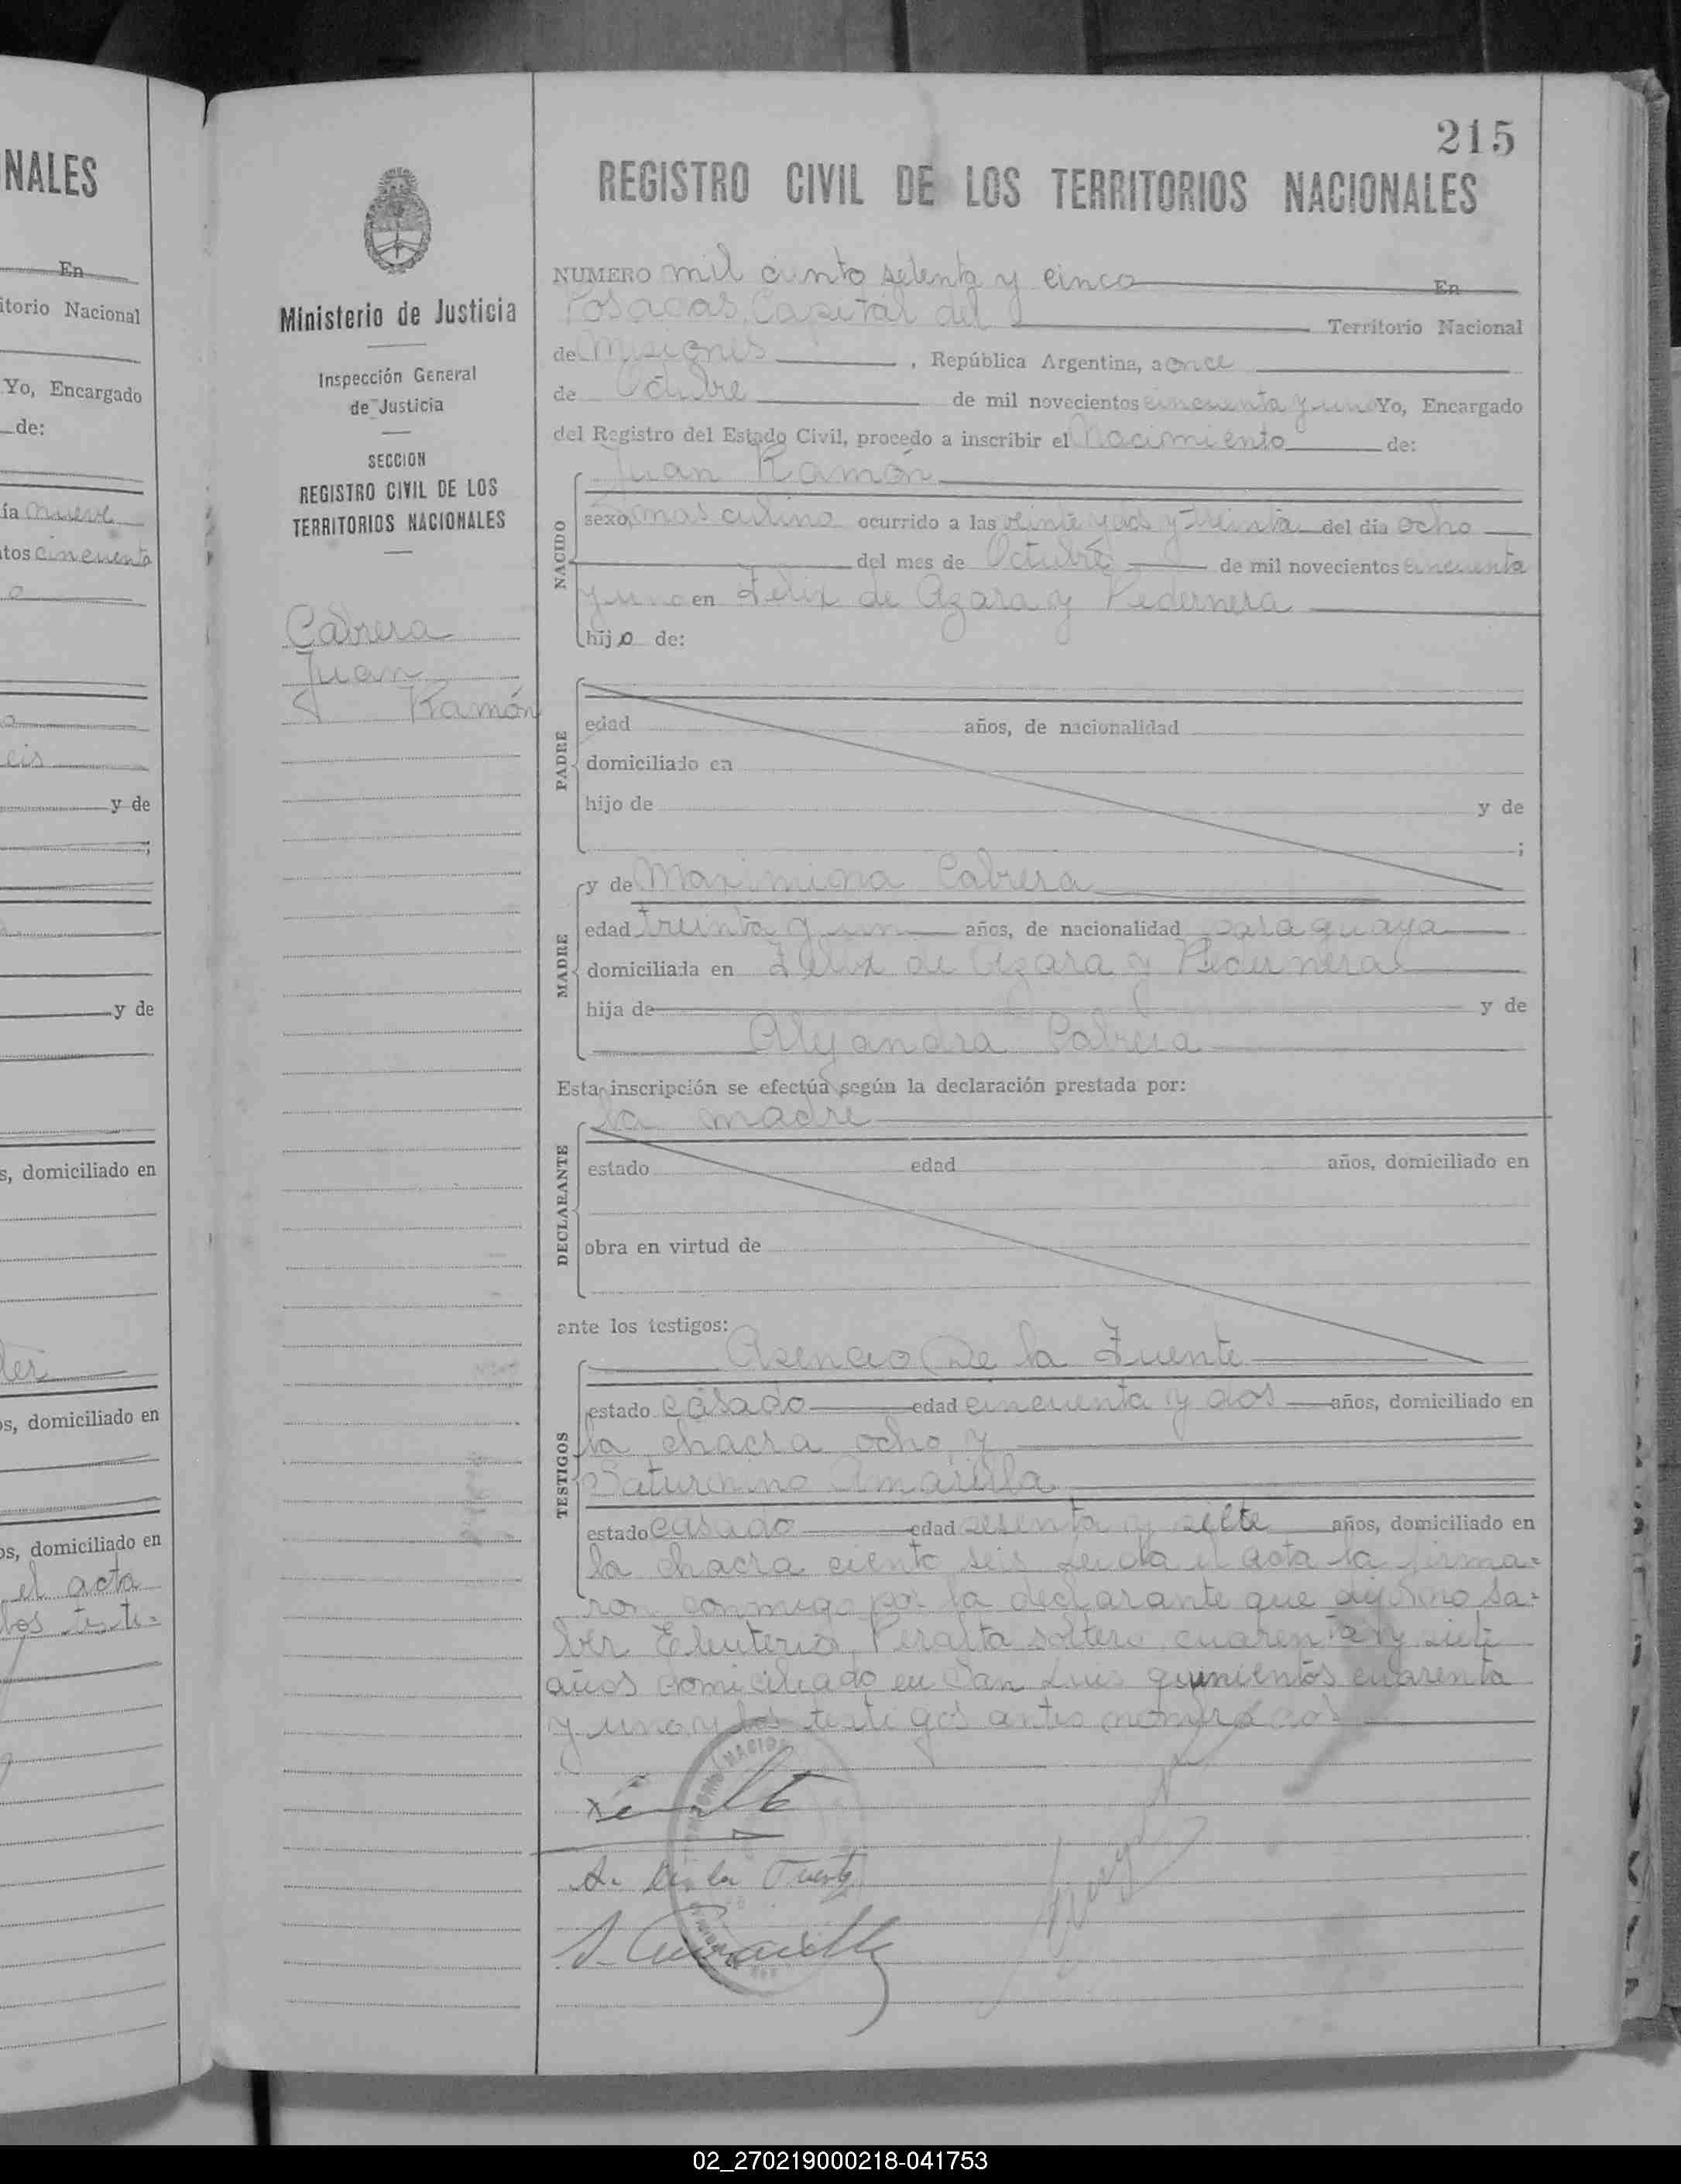 NALES
En
itorio Nacional
Yo, Encargado
de:
ía nueve
tos cincuenta
o
a
eis
y de
;
y de
s, domiciliado en
os, domiciliado en
os, domiciliado en
el acta
los testi=
Ministerio de Justicia
Inspección General
de Justicia
SECCION
REGISTRO CIVIL DE LOS
TERRITORIOS NACIONALES
Cabrera
Juan
Ramón
215
REGISTRO CIVIL DE LOS TERRITORIOS NACIONALES
NUMERO mil ciento setenta y cinco En
Posadas, Capital del Territorio Nacional
de Misiones, República Argentina, a once
de Octubre de mil novecientos cincuenta y uno Yo, Encargado
del Registro del Estado Civil, procedo a inscribir el Nacimiento de:
Juan Ramón
NACIDO
sexo, masculino ocurrido a las veinte y dos y treinta del día ocho
del mes de Octubre de mil novecientos cincuenta
y uno en Felix de Azara y Pedernera
hijo de:
PADRE
edad años, de nacionalidad
domiciliado en
hijo de y de
;
y de Maximiona Cabrera
MADRE
edad treinta y un años, de nacionalidad paraguaya
domiciliada en Felix de Azara y Pedernera
hija de y de
Alejandra Cabrera
Esta inscripción se efectúa según la declaración prestada por:
la madre
DECLARANTE
estado edad años, domiciliado en
obra en virtud de
ante los testigos:
Asencio De la Fuente
TESTIGOS
estado casado edad cincuenta y dos años, domiciliado en
la chacra ocho y
Saturnino Amarilla
estado casado edad sesenta y siete años, domiciliado en
la chacra ciento seis Leida el acta la firma=
ron conmigo por la declarante que dijo no sa=
ber Eleuterio Peralta soltero, cuarenta y siete
años domiciliado en San Luis quinientos cuarenta
y uno y los testigos antes nombrados
A. De la Fuente
S. Amarilla
02_270219000218-041753